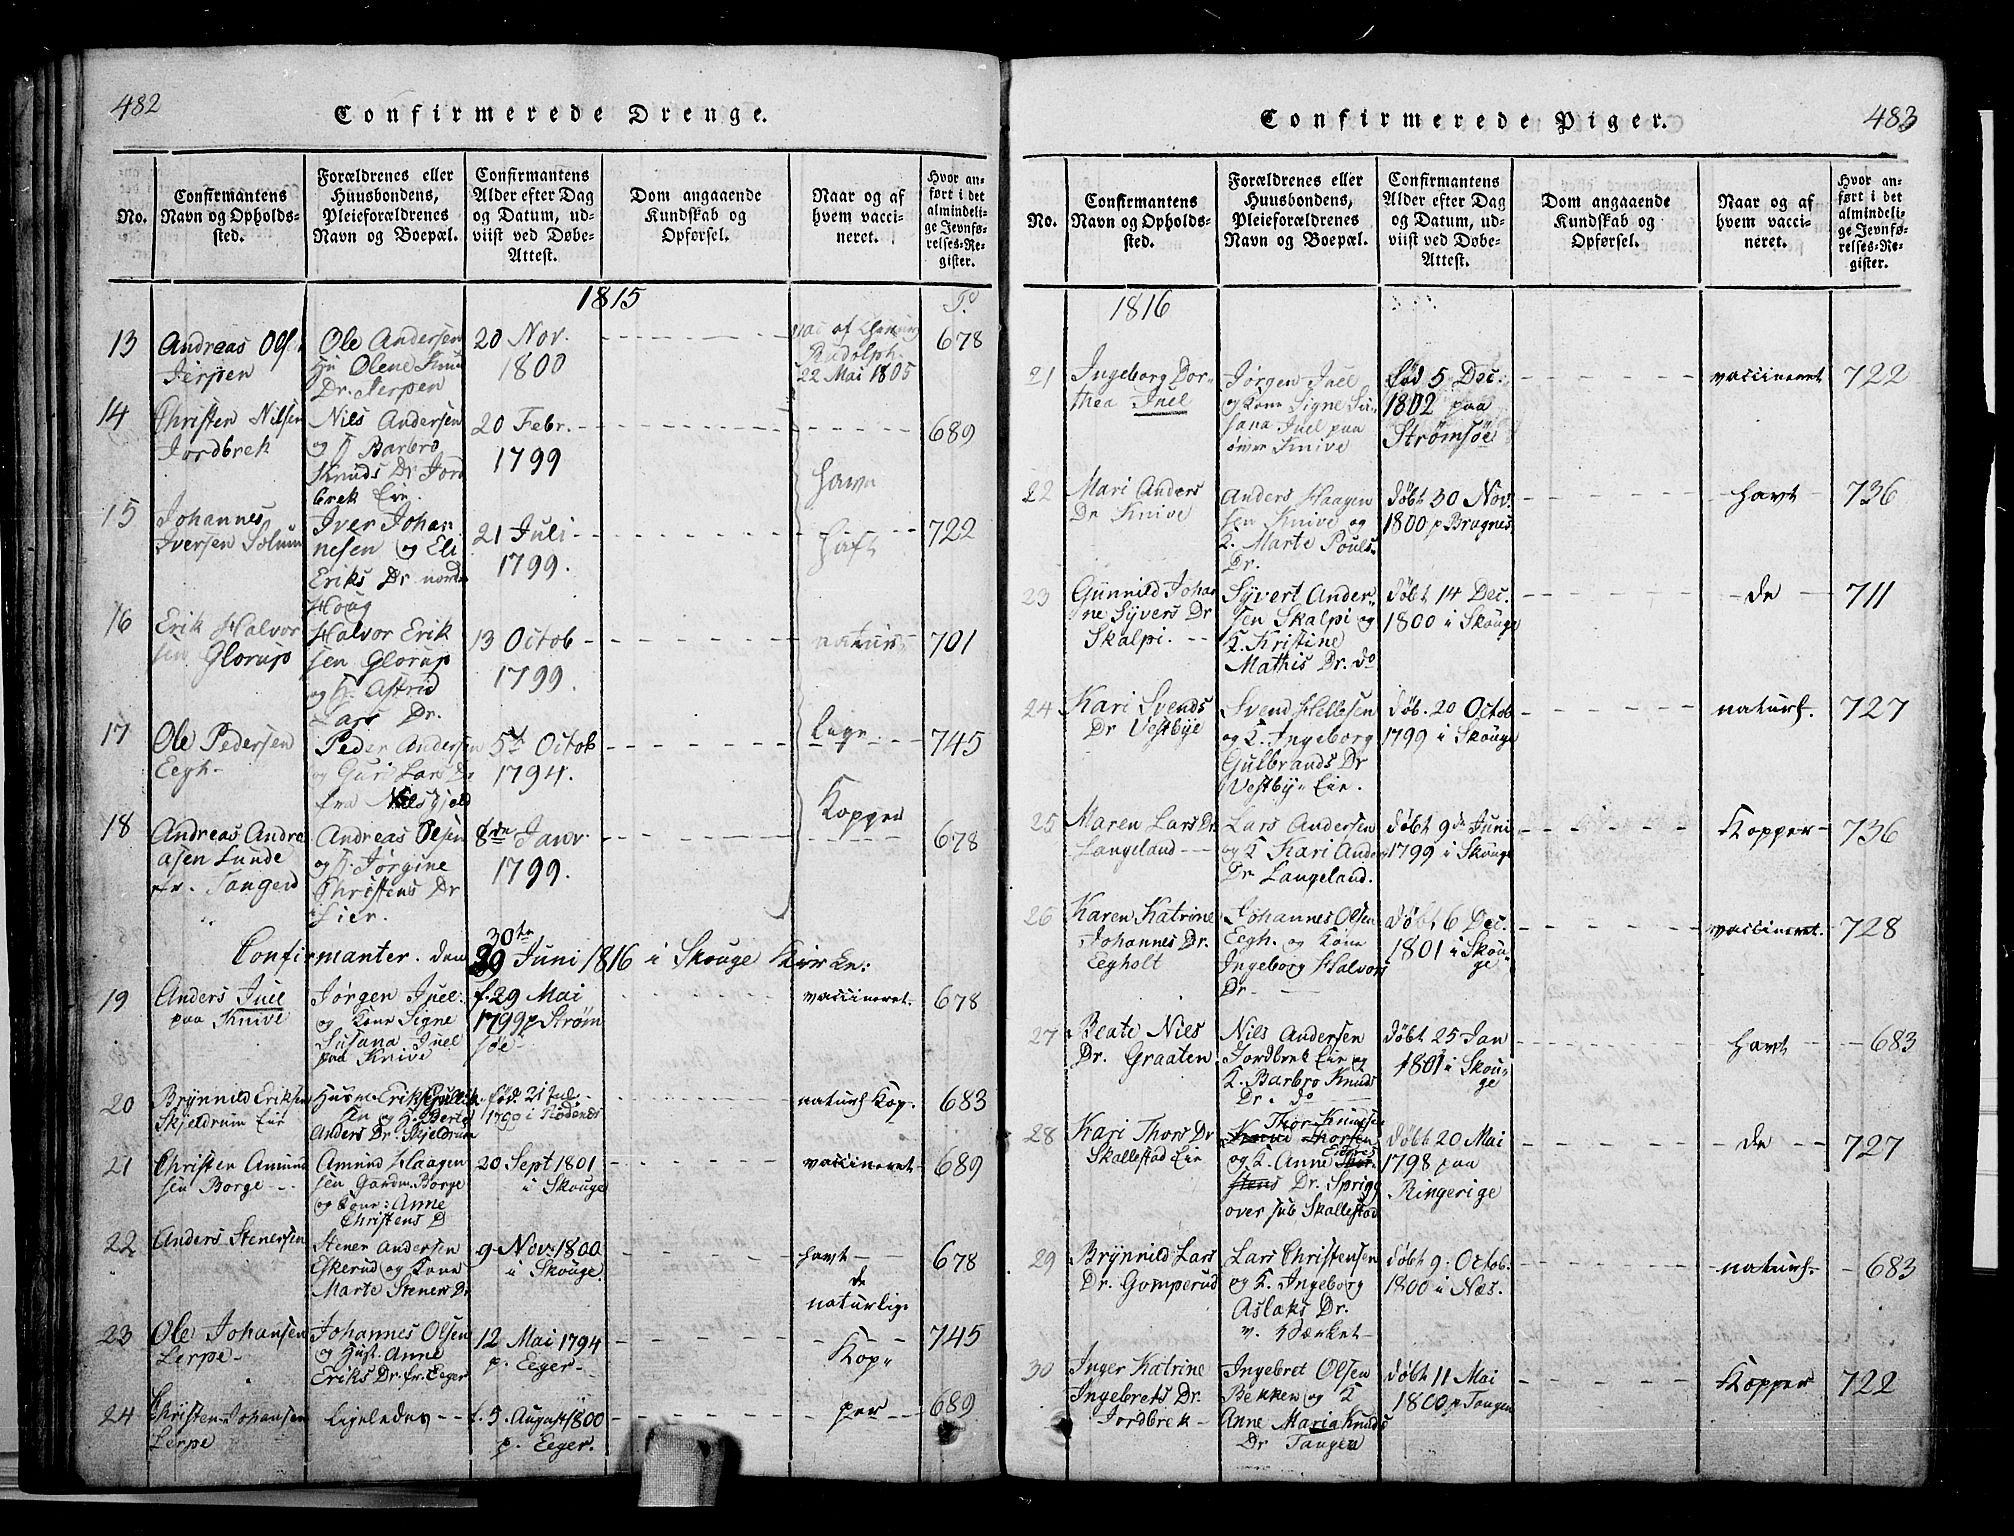 482
Confirmerede Drenge.
No.
Confirmantens
Navn og Opholds-
sted.
Forældrenes eller
Huusbondens,
Pleieforældrenes
Navn og Boepæl.
Confirmantens
Alder efter Dag
og Datum, ud-
viist ved Døbe-
Attest.
Dom angaaende
Kundskab og
Opførsel.
Naar og af
hvem vacci-
neret.
Hvor an-
ført i det
almindeli-
ge Jevnfø-
relses-Re-
gister.
1815
13
Andreas Olsen
Jerpen
Ole Andersen
Olene Knud
Dr. Jerpen
20 Nov.
1800
Rudolph
22 Mai 1805
678
14
Christen Nilsen
Jordbrek
Nils Andersen
og H Barbro
Knuds Dr Jord
brek Eie.
20 Febr.
1799
689
15
Johannes
Iversen Solum
Iver Johan
nesen og Eli
Eriks Dr nordre
Houg
21 Juli
1799.
havn
haft
722
16
Erik Halvor
sen Glorup
Halvor Erik
sen Glorup
og H. Astrid
Lars Dr.
13 Octob
1799.
natur-
701
17
Ole Pedersen
Eegh-
Peder Andersen
og Guri Lars Dr
5te Octob
1794.
lige
745
18
Andreas Andre
asen Lunde
fr. Tangen
Andreas Olsen
og H. Jørgine
Christens Dr
i Lier.
8de Janv
1799.
Kopper
678
Confirmanter. den 30te Juni 1816 i Skouge Kirke:
19
Anders Juel
paa Knive
Jørgen Juel
og Kone Signe
Susana Juel
paa Knive
f. 29 Mai
1799 p Strøm
søe
vaccineret
678
20
Brynnild Eriksen
Skjeldrum Eie
Husm. Erik
sen og H. Berte
Anders Dr. Skjeldrum
fød. 21 Jul
naturl Kop.
683
21
Christen Amund
sen Borge
Amund Haagen
sen Gaardm. Borge
og Kone: Anne
Christens D
20 Sept 1801
i Skouge
vaccineret
689
22
Anders Stenersen
Stener Andersen
Eskerud og Kone
Marte Steners Dr
9 Nov: 1800
i Skouge
havt
de
678
23
Ole Johansen
Lerpe
Johannes Olsen
og Hust. Anne
Eriks Dr. fr. Eeger
12 Mai 1794
p. Eeger
naturlige
Kop-
745
24
Christen Johansen
Lerpe
Ligeledes
f. 5. August 1800
p. Eeger.
per
689
Confirmerede Piger.
483
No.
Confirmantens
Navn og Opholds-
sted.
Forældrenes eller
Huusbondens,
Pleieforældrenes
Navn og Boepæl.
Confirmantens
Alder efter Dag
og Datum, ud-
viist ved Døbe-
Attest.
Dom angaaende
Kundskab og
Opførsel.
Naar og af
hvem vacci-
neret.
Hvor an-
ført i det
almindeli-
ge Jevnfø-
relses-Re-
gister.
1816
21
Ingeborg Dor-
thea Juel
Jørgen Juel
og Kone Signe Su-
sana Juel paa
øvre Knive
fød 5 Dec.
1802 paa
Strømsøe
vaccineret
722
22
Mari Anders
Dr Knive
Anders Haagen
sen Knive og
K. Marte Pouls
Dr.
døbt 30 Nov.
1800 p Bragnes
havt
736
23
Gunnild Johan
ne Syvers Dr
Skalpi.
Syvert Ander-
sen Skalpi og
K. Kristine
Mathis Dr. do
døbt 14 Dec.
1800 i Skouge
de
711
24
Kari Svends
Dr Vestbye
Svend Hellesen
og K. Ingeborg
Gulbrands Dr
Vestby- Eie.
døb. 20 Octob
1799 i Skouge
naturl.
727
25
Maren Lars Dr
Langeland
Lars Andersen
og K Kari Anders
Dr Langeland.
døbt 9de Juni
1799 i Skouge
Kopper
736
26
Karen Katrine
Johannes Dr.
Eegholt
Johannes Olsen
Eegh. og Kone
Ingeborg Halvors
Dr
døbt 6 Dec.
1801 i Skou
ge
vaccineret.
728
27
Beate Niels
Dr. Graaten
Nils Andersen
Jordbrek Eie og
K. Barbro Knuds
Dr. do
døbt 25 Jan
1801 i Skou-
ge
havt
683
28
Kari Thors Dr
Skallestad Eie
Thor Knudsen
Knud Thorsen
og K. Anne
Dr. Sprigg
over sub Skallestad
døbt 20 Mai
1798 paa
Ringerige
de
727
29
Brynnild Lars
Dr. Gomperud
Lars Christensen
og K. Ingeborg
Aslaks Dr.
v. Værket
døbt 9. Octob.
1800 i Næs.
naturl.
683
30
Inger Katrine
Ingebrets Dr.
Jordbrek
Ingebret Olsen
Bekken og K
Anne Maria Knuds
Dr Tangen
døbt 11 Mai
1800 p Tangen
Kopper
722